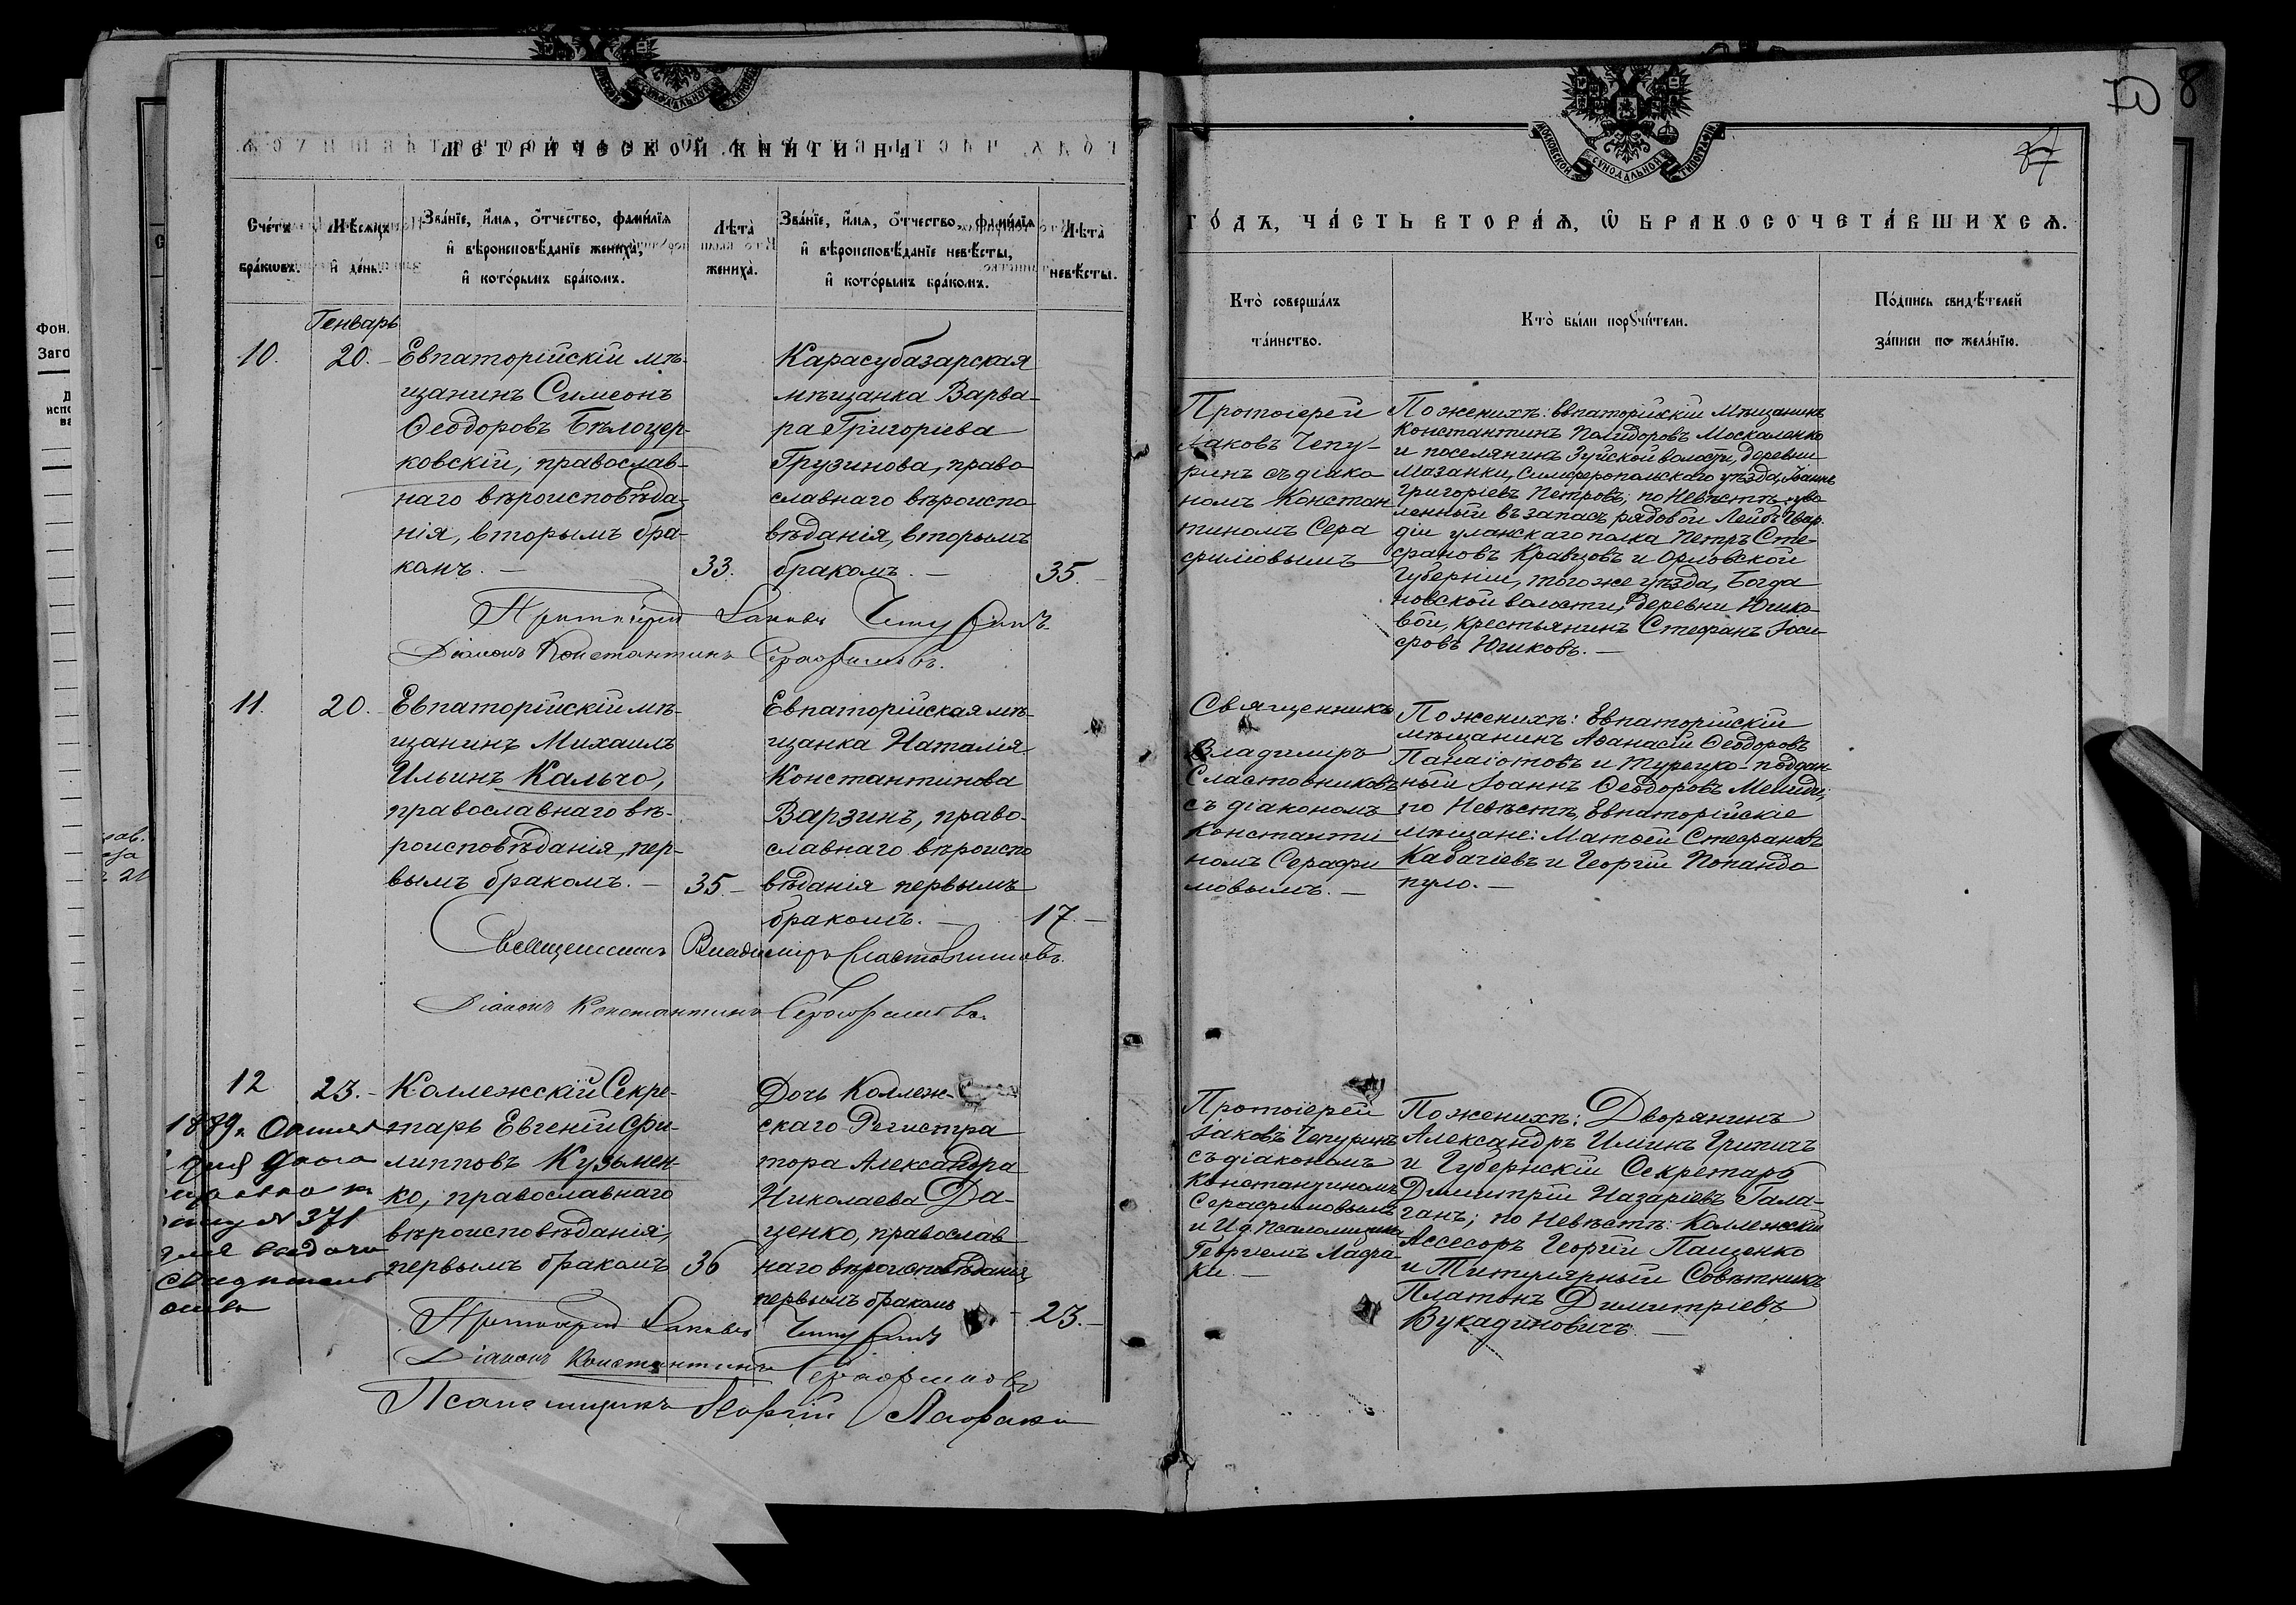 МЕТРИЧЕСКОЙ КНИГИ НЫ
Счетъ браковъ.
Мѣсяцъ и день.
Званіе, имя, отчество, фамилія
и вѣроисповѣданіе жениха,
и которымъ бракомъ.
Лѣта
жениха.
Званіе, имя, отчество, фамилія
и вѣроисповѣданіе невѣсты,
и которымъ бракомъ.
Лѣта
невѣсты.
Генварь
10.
20.
Евпаторійскій мѣ-
щанинъ Симеонъ
Ѳеодоровъ Бѣлоцер-
ковскій, православ-
наго вѣроисповѣда-
нія, вторымъ бра-
комъ. —
33.
Карасубазарская
мѣщанка Варва-
ра Григоріева
Грузинова, право
славнаго вѣроиспо
вѣданія, вторымъ
бракомъ. —
35. —
Протоіерей Іаковъ Чепуринъ
Діаконъ Константинъ Серафимовъ.
11.
20.
Евпаторійскій мѣ-
щанинъ Михаилъ
Ильинъ Кальчо,
православнаго вѣ-
роисповѣданія, пер-
вымъ бракомъ. —
35. —
Евпаторійская мѣ-
щанка Наталія
Константинова
Варзинъ, право-
славнаго вѣроиспо
вѣданія первымъ
бракомъ. —
17. —
Священникъ Владиміръ Сластовниковъ.
Діаконъ Константинъ Серафимовъ.
12
23. —
Коллежскій Секре-
тарь Евгеній Фи-
липповъ Кузьмен-
ко, православнаго
вѣроисповѣданія,
первымъ бракомъ
36
Дочь Коллеж-
скаго Регистра
тора Александра
Николаева Да-
ценко, православ
наго вѣроисповѣданія,
первымъ бракомъ
23. —
1889
дня
№ 371
выдачи
свидѣтель
ства
Протоіерей Іаковъ Чепуринъ
Діаконъ Константинъ Серафимовъ
Псаломщикъ Георгій Лафаки
8
ГОДЪ, ЧАСТЬ ВТОРАЯ, Ѡ БРАКОСОЧЕТАВШИХСЯ.
МОСКОВСКОЙ СУНОДАЛЬНОЙ ТИПОГРАФІИ
Кто совершалъ
таинство.
Кто были поручители.
Подпись свидѣтелей
записи по желанію.
Протоіерей
Іаковъ Чепу-
ринъ съ діако
номъ Констан
тиномъ Сера
фимовымъ
По женихѣ: Евпаторійскій мѣщанинъ
Константинъ Полидоровъ Москаленко
и поселянинъ Зуйской волости, деревни
Мазанки, Симферопольскаго уѣзда, Іоаннъ
Григоріевъ Петровъ; по Невѣстѣ: уво
ленный въ запасъ рядовой Лейбъ Гвар
діи уланскаго полка Петръ Сте-
фановъ Кравцовъ и Орловской
Губерніи, того же уѣзда, Богда
новской волости, деревни Юшко-
вой, крестьянинъ Стефанъ Іоси
фовъ Юшковъ. —
Священникъ
Владиміръ
Сластовниковъ
съ діакономъ
Константи
номъ Серафи
мовымъ. —
По женихѣ: Евпаторійскій
мѣщанинъ Аѳанасій Ѳеодоровъ
Панаіотовъ и турецко-поддан-
ный Іоаннъ Ѳеодоровъ
по Невѣстѣ, Евпаторійскіе
мѣщане: Матѳей Стефановъ
Кабачіевъ и Георгій Попандо
пуло. —
Протоіерей
Іаковъ Чепуринъ
съ діакономъ
Константиномъ
Серафимовымъ
и И. д. псаломщика
Георгіемъ Лафа-
ки. —
По женихѣ: Дворянинъ
Александръ Ильинъ Грипичъ
и Губернскій Секретарь
Димитрій Назаріевъ Гала-
ганъ; по Невѣстѣ: Коллежскій
Ассесоръ Георгій Пащенко
и Титулярный Совѣтникъ
Платонъ Димитріевъ
Вукадиновичъ. —